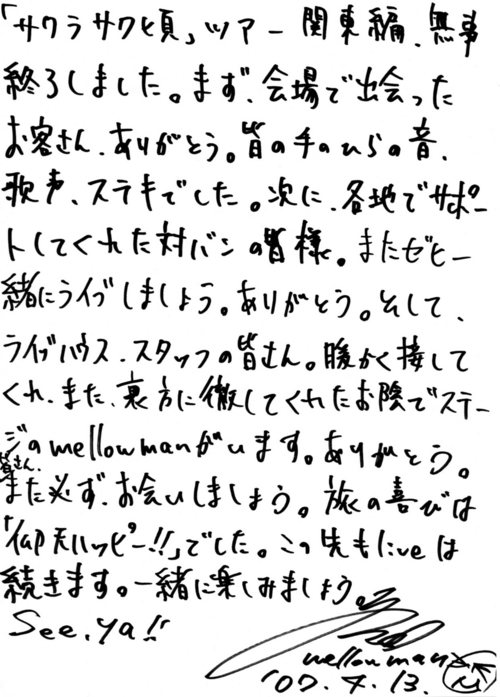 「サクラサク頃」ツアー関東編、無事
終了しました。まず、会場で出会った
お客さん、ありがとう。皆の手のひらの音、
歌声、ステキでした。次に、各地でサポー
トしてくれた対バンの皆様。またゼヒ一
緒にライブしましょう。ありがとう。そして、
ライブハウス、スタッフの皆さん。暖かく接して
くれ、また、裏方に徹してくれたお陰でステー
ジのmellowmanがいます。ありがとう。
皆さん、
また必ず、お会いしましょう。旅の喜びは
「仰天ハッピー!!」でした。この先もliveは
続きます。一緒に楽しみましょう。
See, ya!!
mellowman
'07. 4. 13.